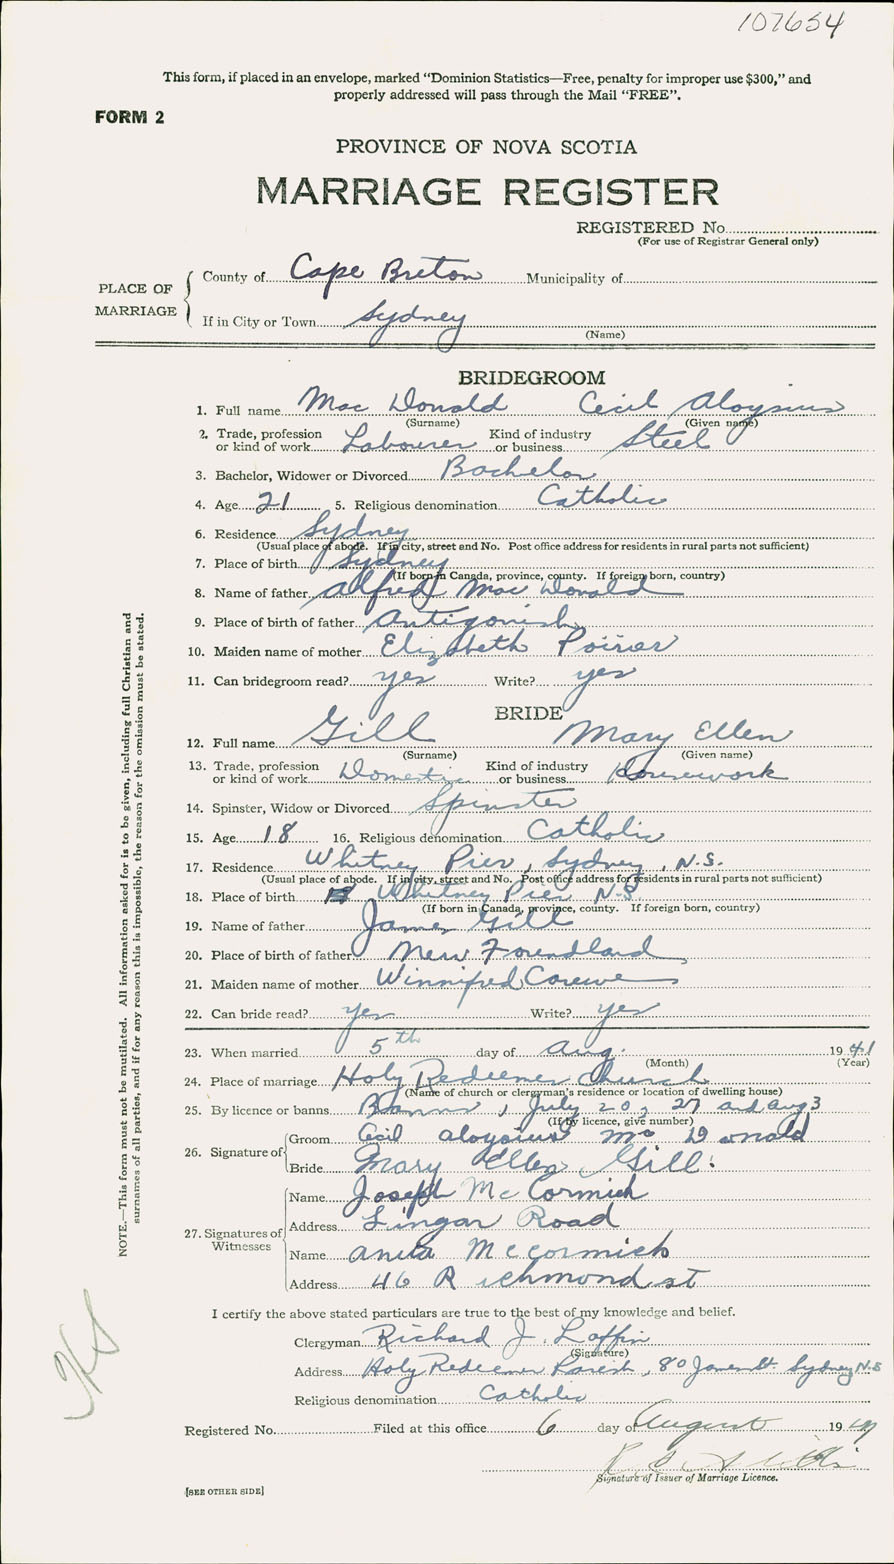 107654
This form, if placed in an envelope, marked “Dominion Statistics—Free, penalty for improper use $300,” and
properly addressed will pass through the Mail “FREE”.
FORM 2
PROVINCE OF NOVA SCOTIA
MARRIAGE REGISTER
REGISTERED No.
(For use of Registrar General only)
PLACE OF MARRIAGE
County of Cape Breton Municipality of
If in City or Town Sydney
(Name)
BRIDEGROOM
1. Full name Mac Donald Cecil Aloysius
(Surname) (Given name)
2. Trade, profession or kind of work Labourer Kind of industry or business Steel
3. Bachelor, Widower or Divorced Bachelor
4. Age 21 5. Religious denomination Catholic
6. Residence Sydney
(Usual place of abode. If in city, street and No. Post office address for residents in rural parts not sufficient)
7. Place of birth Sydney
(If born in Canada, province, county. If foreign born, country)
8. Name of father Alfred Mac Donald
9. Place of birth of father Antigonish
10. Maiden name of mother Elizabeth Poirier
11. Can bridegroom read? yes Write? yes
BRIDE
12. Full name Gill Mary Ellen
(Surname) (Given name)
13. Trade, profession or kind of work Domestic Kind of industry or business Housework
14. Spinster, Widow or Divorced Spinster
15. Age 18 16. Religious denomination Catholic
17. Residence Whitney Pier, Sydney, N.S.
(Usual place of abode. If in city, street and No. Post office address for residents in rural parts not sufficient)
18. Place of birth Whitney Pier N-S
(If born in Canada, province, county. If foreign born, country)
19. Name of father James Gill
20. Place of birth of father New Foundland
21. Maiden name of mother Winnifred
22. Can bride read? yes Write? yes
23. When married 5th day of Aug. 1941
(Month) (Year)
24. Place of marriage Holy Redeemer Church
(Name of church or clergyman's residence or location of dwelling house)
25. By licence or banns Banns, July 20, 27 and Aug 3
(If by licence, give number)
26. Signature of
Groom Cecil Aloysius Mc Donald
Bride Mary Ellen Gill.
27. Signatures of Witnesses
Name Joseph McCormick
Address Lingan Road
Name Anita McCormick
Address 46 Richmond st
I certify the above stated particulars are true to the best of my knowledge and belief.
Clergyman Richard J. Laffin
(Signature)
Address Holy Redeemer Parish, 80 James St. Sydney N-S
Religious denomination Catholic
Registered No. Filed at this office 6 day of August 1941
Signature of Issuer of Marriage Licence.
[SEE OTHER SIDE]
NOTE.—This form must not be mutilated. All information asked for is to be given, including full Christian and
surnames of all parties, and if for any reason this is impossible, the reason for the omission must be stated.